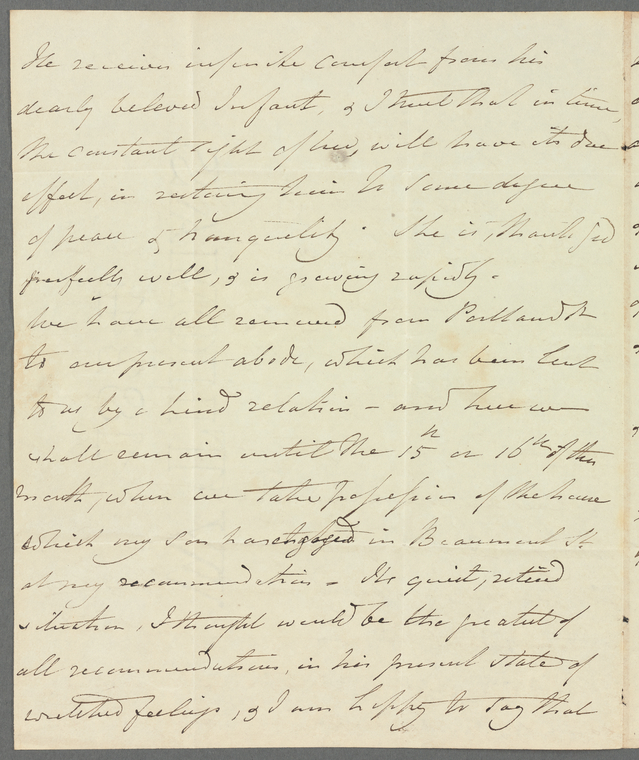 He receives infinite comfort from his
dearly beloved Infant, & I trust that in time,
the constant sight of her, will have its due
effect, in restoring him to some degree
of peace & tranquility. She is, thank God
perfectly well, & is growing rapidly.
We have all removed from Portland St
to our present abode, which has been lent
to us by a kind relation - and here we
shall remain until the 15th or 16th of this
month, when we take possession of the house
which my Son has engaged in Beaumont St
at my recommendation - Its quiet, retired
situation, I thought would be the greatest of
all recommendations, in his present state of
wretched feelings, & I am happy to say that